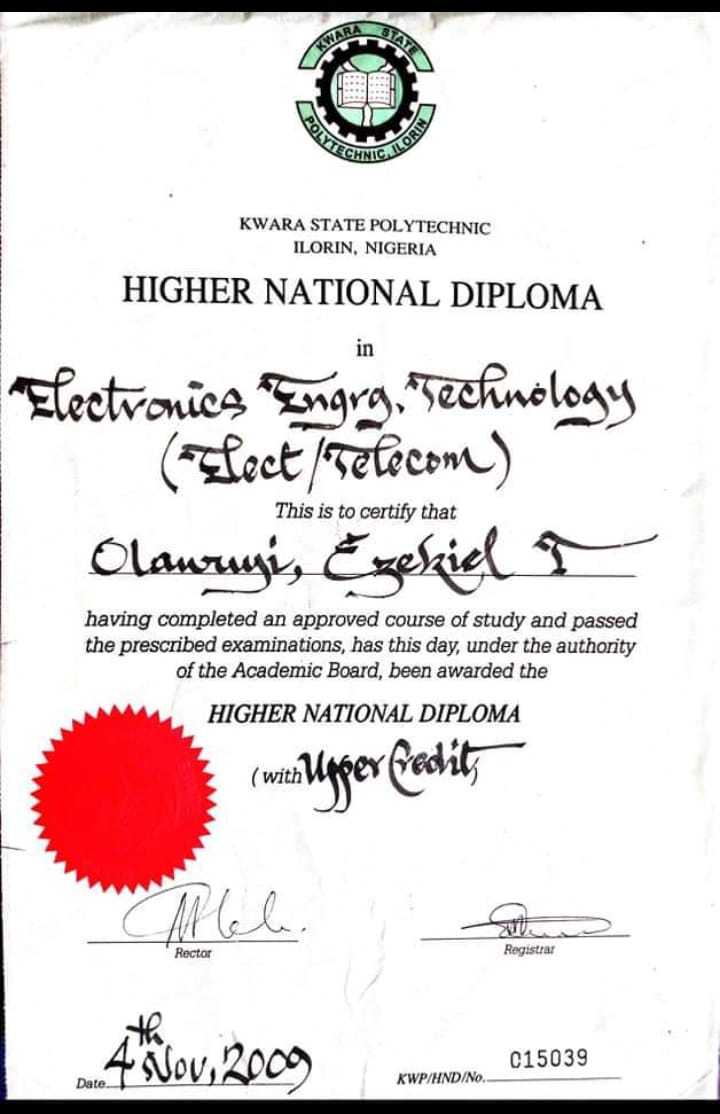 KWARA STATE
POLYTECHNIC, ILORIN
KWARA STATE POLYTECHNIC
ILORIN, NIGERIA
HIGHER NATIONAL DIPLOMA
in
Electronics Engrg. Technology
(Elect/Telecom)
This is to certify that
Olawuyi, Ezekiel T
having completed an approved course of study and passed
the prescribed examinations, has this day, under the authority
of the Academic Board, been awarded the
HIGHER NATIONAL DIPLOMA
(with Upper Credit)
Rector
Registrar
Date 4th Nov, 2009
KWP/HND/No. 015039